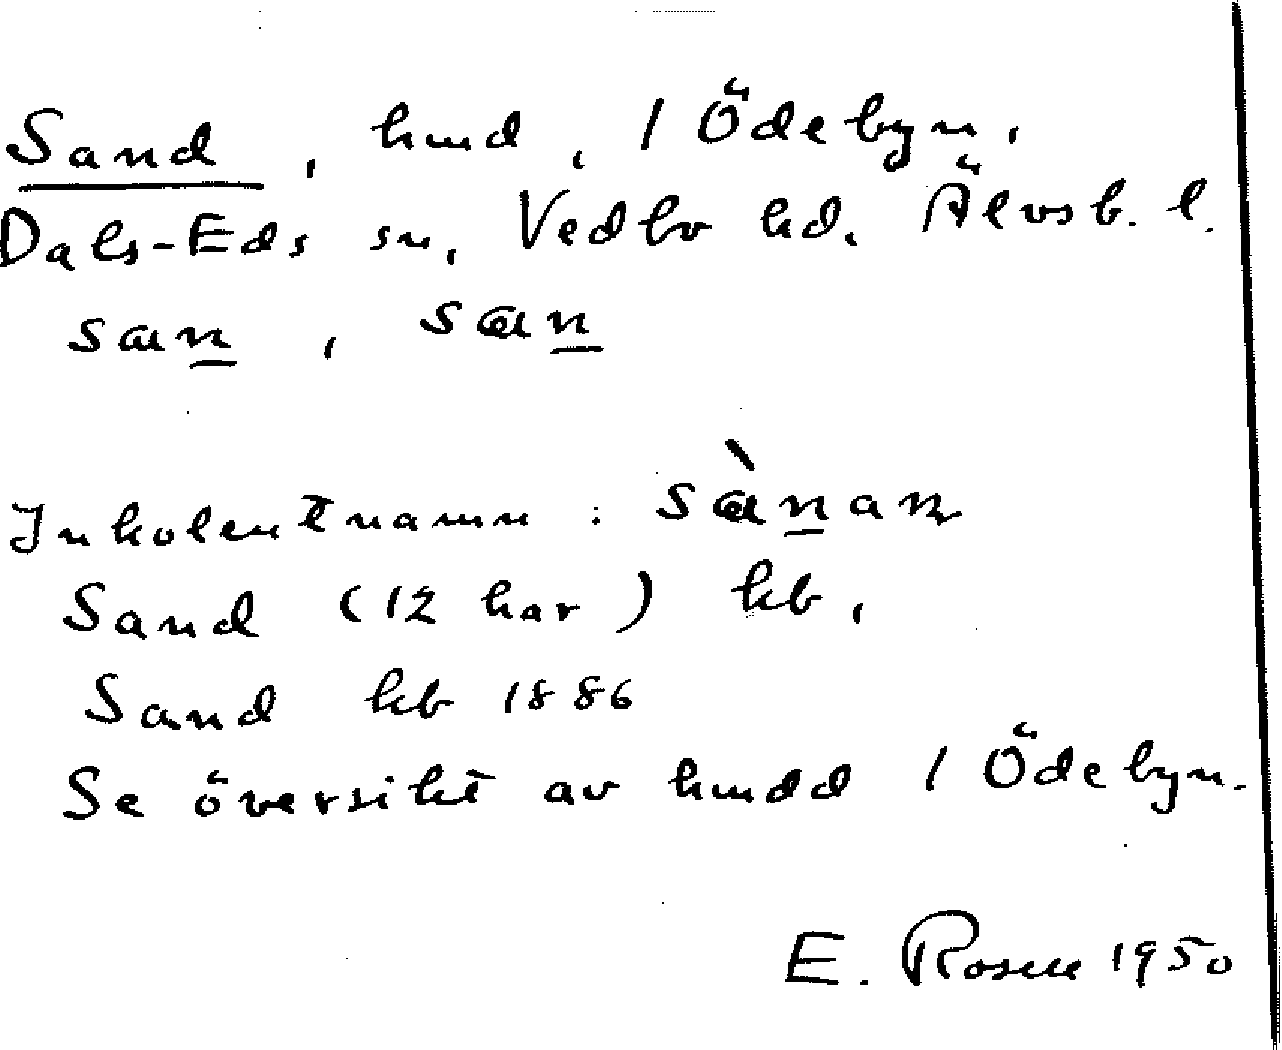 Sand, hmd, 1 Ödebyn,
Dals-Eds sn, Vedbo hd. Älvsb. l.
san, sɑn
Inkolentnamn: sɑ̀nan
Sand (12 har) kb,
Sand kb 1886
Se översikt av hmdd 1 Ödebyn.
E. Rosell 1950